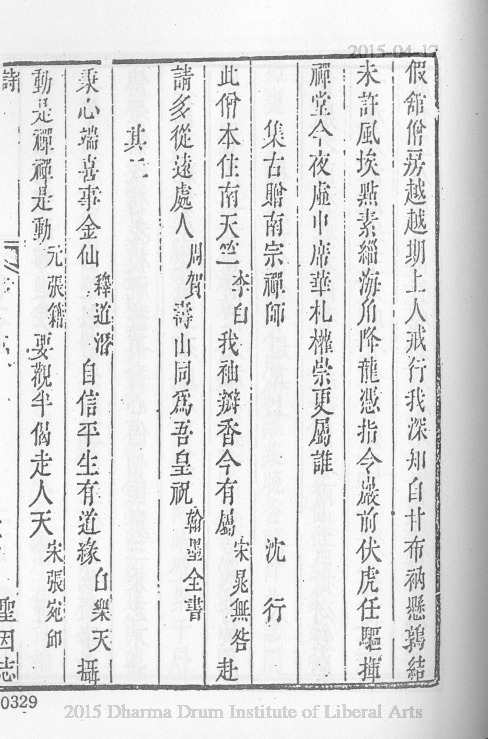 2015-04-17
假館僧房越越期上人戒行我深知自甘布衲懸鶉結
未許風埃點素緇海角降龍憑指令巖前伏虎任驅揮
禪堂今夜虛中席華札權崇更屬誰
集古贈南宗禪師 沈行
此僧本住南天竺李白我袖瓣香今有屬宋晁無咎赴
請多從遠處人周賀壽山同爲吾皇祝翰墨全書
其二
秉心端喜事金仙釋道潛自信平生有道緣白樂天攝
動是禪禪是動元張籍要觀半偈走人天宋張宛邱
詩 聖因志
0329
2015 Dharma Drum Institute of Liberal Arts